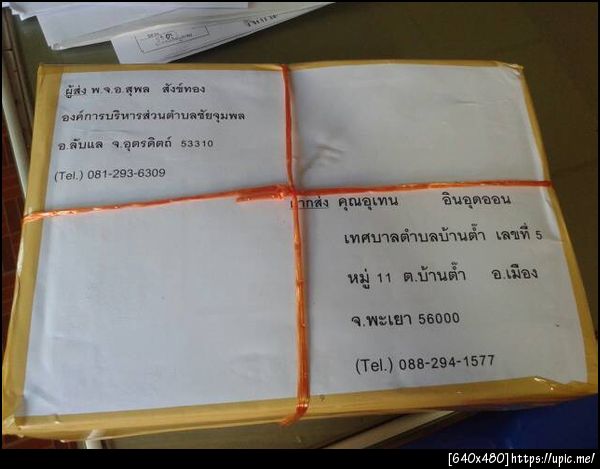 ผู้ส่ง พ.จ.อ.สุพล สังข์ทอง
องค์การบริหารส่วนตำบลชัยจุมพล
อ.ลับแล จ.อุตรดิตถ์ 53310
(Tel.) 081-293-6309
ฝากส่ง คุณอุเทน อินอุดออน
เทศบาลตำบลบ้านต๊ำ เลขที่ 5
หมู่ 11 ต.บ้านต๊ำ อ.เมือง
จ.พะเยา 56000
(Tel.) 088-294-1577
[640x480]https://upic.me/